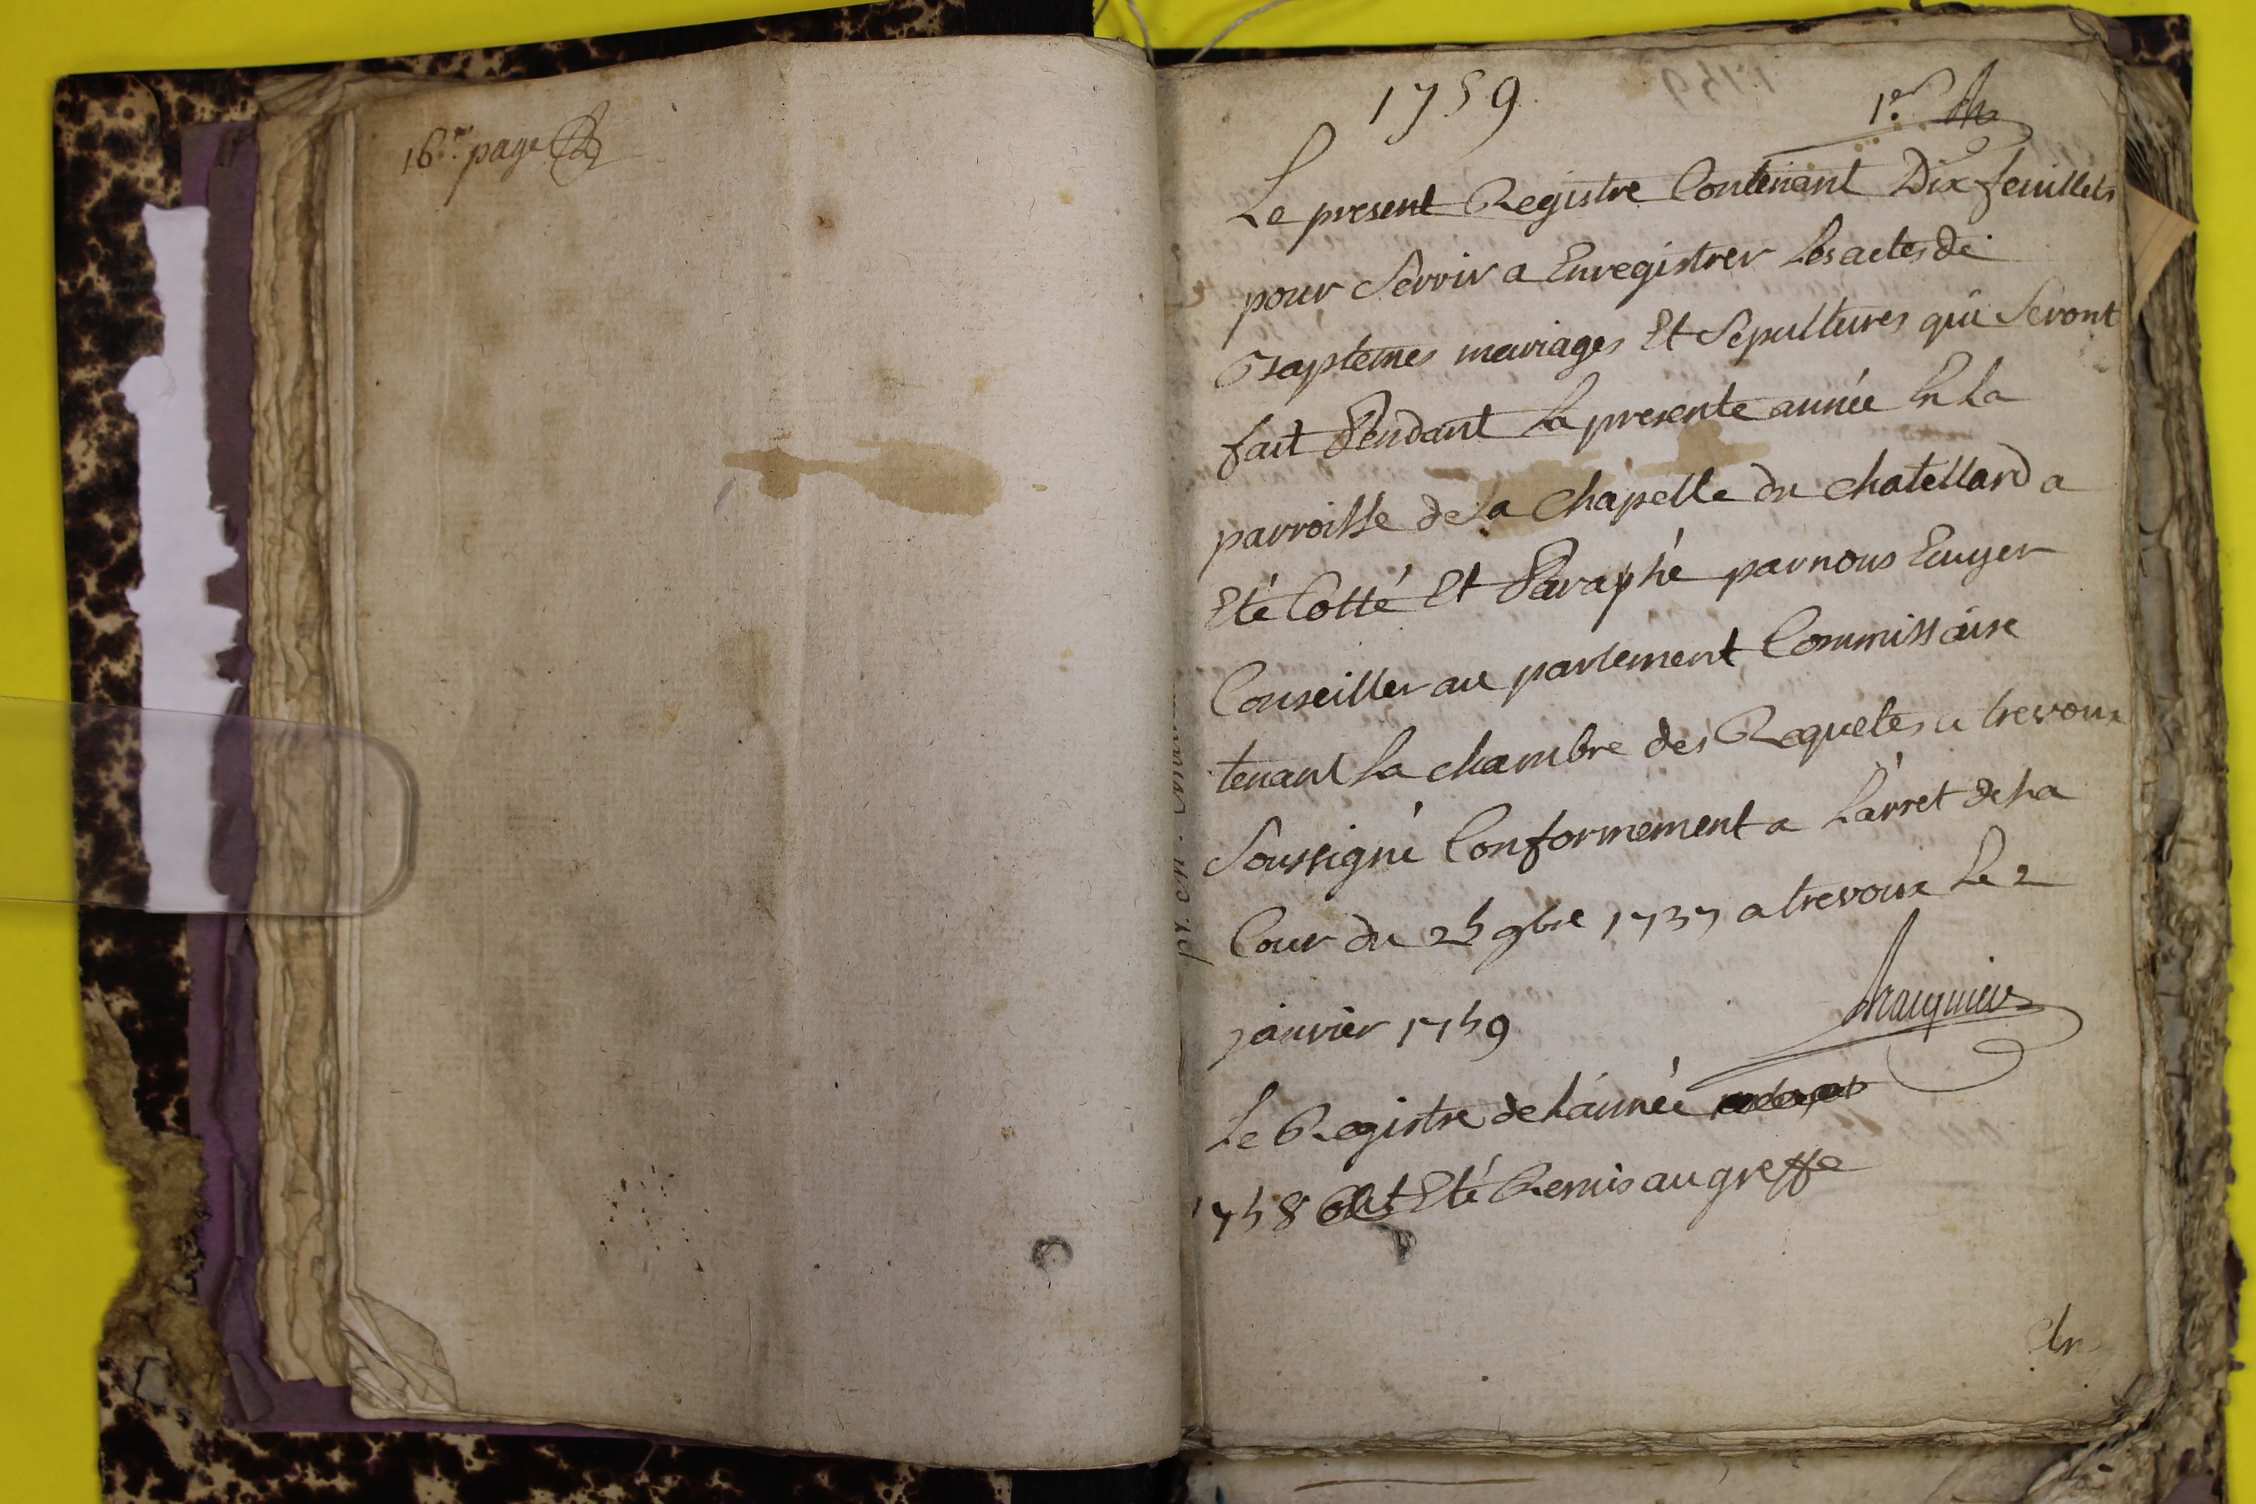 16me page
1759
1er
Le present Registre Contenant Dix feuillets
pour Servir a Enregistrer les actes de
Baptemes mariages Et Sepultures qui Seront
fait Pendant la presente année En La
parroisse de la Chapelle du chatellard a
Eté Cotté Et Paraphé par nous Ecuyer
Conseiller au parlement Commissaire
tenant la chambre des Requetes a trevoux
Soussigné Conformement a L'arret de La
Cour du 25 9bre 1737 a trevoux Le 2
janvier 1759
Le Registre de L'année
1758 Eté Remis au greffe